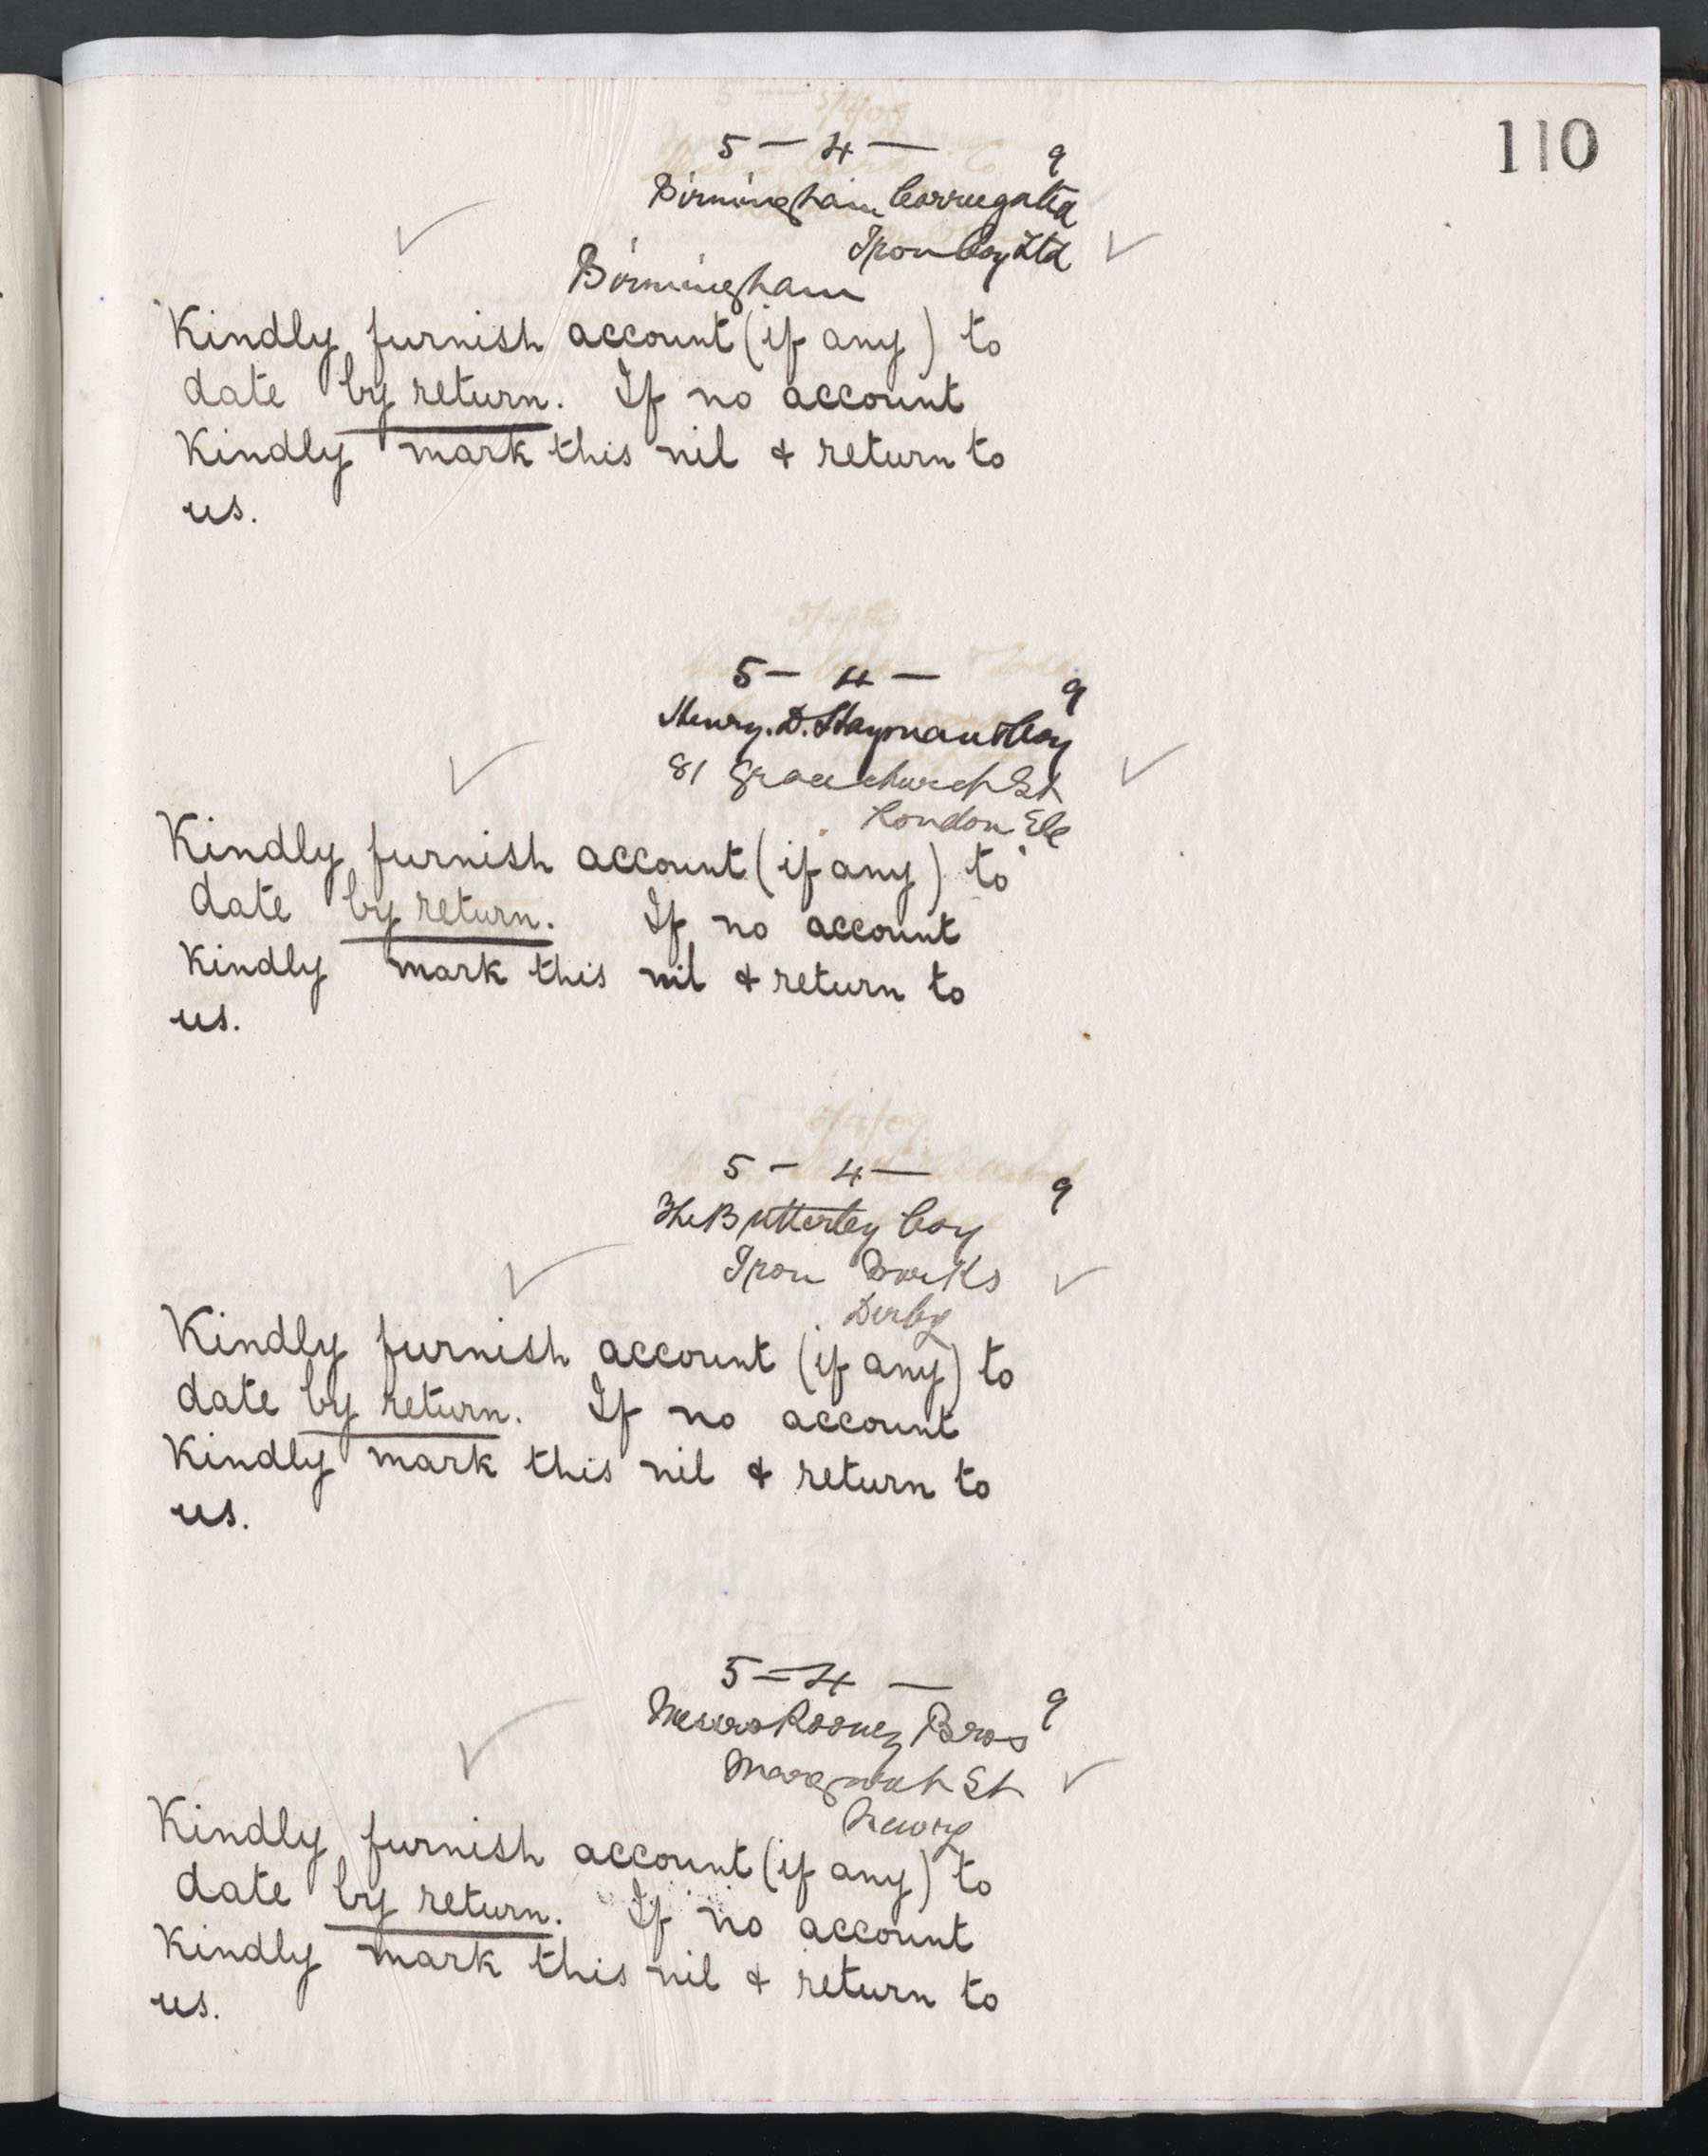 110
5 — 4 — 9
Birmingham Corrugated
Iron Coy Ltd
Birmingham
Kindly furnish account (if any) to
date by return. If no account
Kindly mark this nil & return to
us.
5 — 4 — 9
Henry. D. Stayman & Coy
81 Gracechurch St
London EC
Kindly furnish account (if any) to
date by return. If no account
Kindly mark this nil & return to
us.
5 — 4 — 9
The Butterley Coy
Iron Works
Derby
Kindly furnish account (if any) to
date by return. If no account
Kindly mark this nil & return to
us.
5 — 4 — 9
Messrs Rooney Bros
St
Newry
Kindly furnish account (if any) to
date by return. If no account
Kindly mark this nil & return to
us.